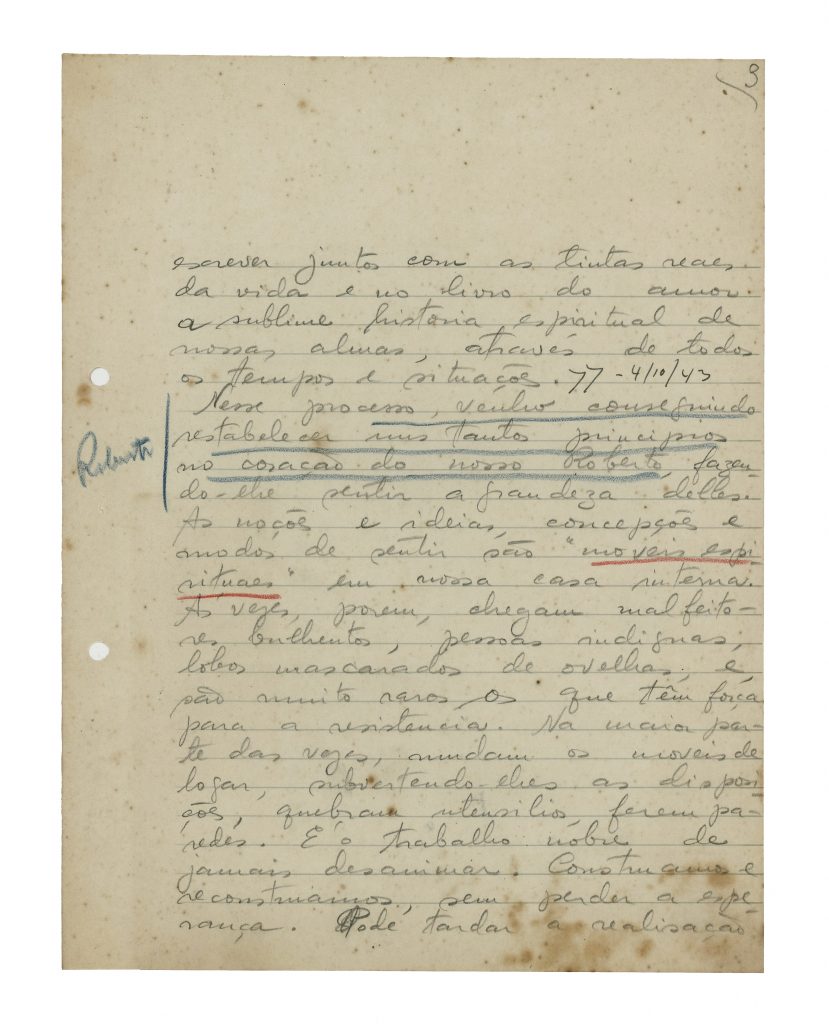 3
escrever juntos com as tintas reaes
da vida e no livro do amor
a sublime historia espiritual de
nossas almas, através de todos
os tempos e situações. 77 - 4/10/43
Nesse processo, venho conseguindo
restabelecer uns tantos principios
Roberto
no coração do nosso Roberto, fazen-
do-lhe sentir a grandeza delles.
As noções e ideias, concepções e
modos de sentir são "moveis espi-
rituaes" em nossa casa interna.
As vezes, porem, chegam malfeito-
res bulhentos, pessoas indignas,
lobos mascarados de ovelhas, e,
são muito raros os que têm força
para a resistencia. Na maior par-
te das vezes, mudam os moveis de
logar, subvertendo-lhes as disposi-
ções, quebram utensilios, ferem pa-
redes. É o trabalho nobre de
jamais desanimar. Construamos e
reconstruamos, sem perder a espe-
rança. Pode tardar a realisação